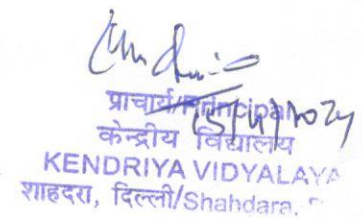 प्राचार्य/Principal
15/4/2024
केन्द्रीय विद्यालय
KENDRIYA VIDYALAYA
शाहदरा, दिल्ली/Shahdara,